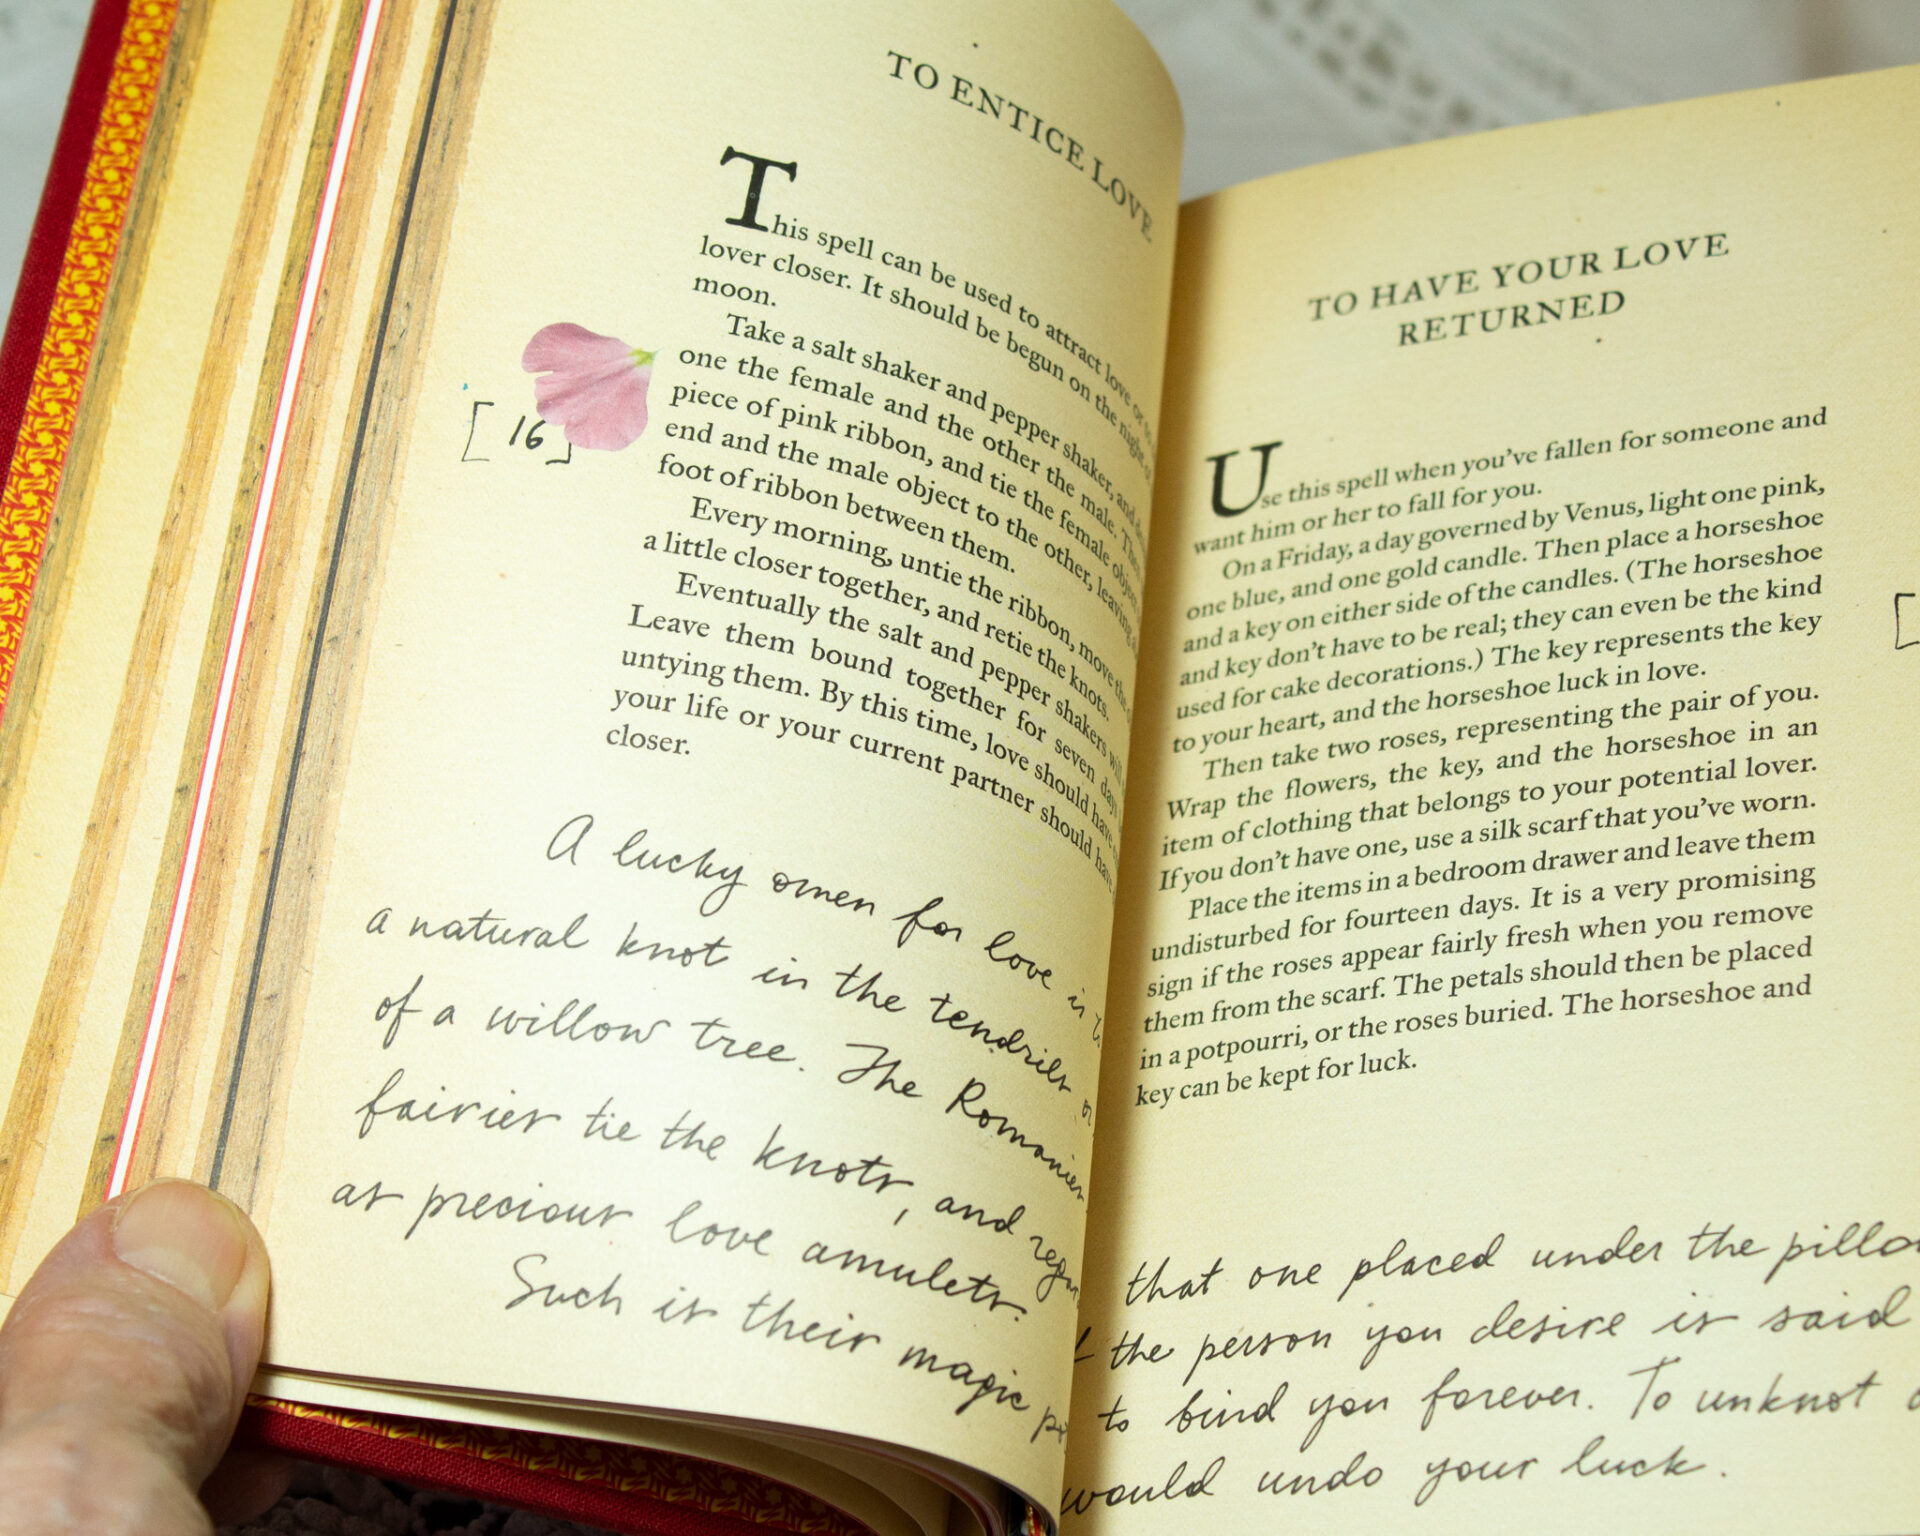 TO ENTICE LOVE
This spell can be used to attract love or to
lover closer. It should be begun on the night of
moon.
Take a salt shaker and pepper shaker, and
one the female and the other the male. Then
piece of pink ribbon, and tie the female object
end and the male object to the other, leaving a
foot of ribbon between them.
Every morning, untie the ribbon, move the
a little closer together, and retie the knots.
Eventually the salt and pepper shakers will
Leave them bound together for seven days
untying them. By this time, love should have
your life or your current partner should have
closer.
[16]
A lucky omen for love is
a natural knot in the tendrils
of a willow tree. The Romanies
fairies tie the knots, and
as precious love amulets.
Such is their magic
TO HAVE YOUR LOVE
RETURNED
Use this spell when you've fallen for someone and
want him or her to fall for you.
On a Friday, a day governed by Venus, light one pink,
one blue, and one gold candle. Then place a horseshoe
and a key on either side of the candles. (The horseshoe
and key don't have to be real; they can even be the kind
used for cake decorations.) The key represents the key
to your heart, and the horseshoe luck in love.
Then take two roses, representing the pair of you.
Wrap the flowers, the key, and the horseshoe in an
item of clothing that belongs to your potential lover.
If you don't have one, use a silk scarf that you've worn.
Place the items in a bedroom drawer and leave them
undisturbed for fourteen days. It is a very promising
sign if the roses appear fairly fresh when you remove
them from the scarf. The petals should then be placed
in a potpourri, or the roses buried. The horseshoe and
key can be kept for luck.
[
that one placed under the
the person you desire is said
to bind you forever. To unknot
would undo your luck.